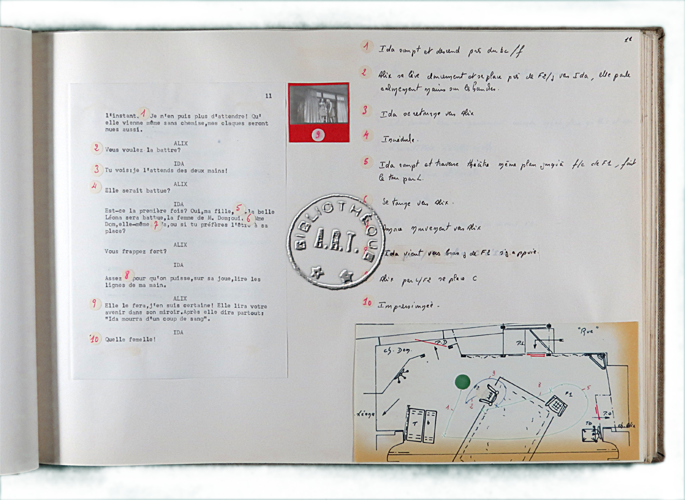 11
l'instant. 1 Je n'en puis plus d'attendre! Qu'
elle vienne même sans chemise, mes claques seront
nues aussi.
ALIX
2 Vous voulez la battre?
IDA
3 Tu vois: je l'attends des deux mains!
ALIX
4 Elle serait battue?
IDA
Est-ce la première fois? Oui, ma fille, 5 la belle
Léona sera battue, la femme de M. 6 Une
Dom, elle-même 7 ou si tu préfères l'être à sa
place?
ALIX
Vous frappez fort?
IDA
Assez 8 pour qu'on puisse, sur sa joue, lire les
lignes de ma main.
ALIX
9 Elle le fera, j'en suis certaine! Elle lira votre
avenir dans son miroir. Après elle dira partout:
"Ida mourra d'un coup de sang".
IDA
10 Quelle femelle!
9
BIBLIOTHÈQUE
A.R.T.
1 Ida rompt et descend près du bc/f
2 Alix se lève doucement et se place près de F2/j vers Ida, elle parle
mains sur les hanches.
3 Ida se retourne vers Alix
4 Incrédule.
5 Ida rompt et traverse théâtre même plan jusqu'à f/c de F1, fait
6 Se tourne vers Alix.
mouvement vers Alix
Ida vient vers de F2 s'y appuie.
Alix par se place C
10 Impressionnée.
ch. Dom.
"Rue"
F1
F2